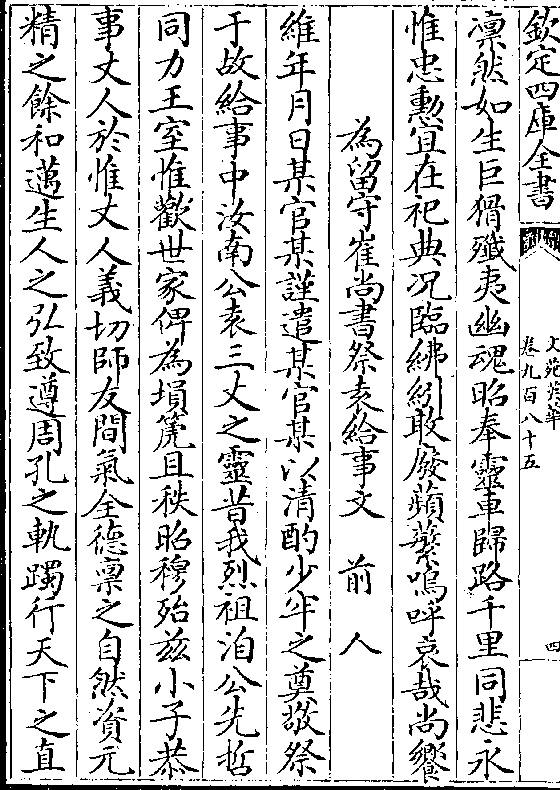 欽定四庫全書
文苑英華
卷九百八十五
四
凛然如生巨猾殲夷幽魂昭奉靈車歸路千里同悲永
惟忠勲宜在祀典况臨紼紖敢廢蘋蘩嗚呼哀哉尚饗
為留守崔尚書祭袁給事文 前人
維年月日某官某謹遣某官某以清酌少牢之奠敬祭
于故給事中汝南公袁三丈之靈昔我烈祖洎公先哲
同力王室惟歡世家俾為塤箎且秩昭穆殆兹小子恭
事丈人於惟丈人義切師友間氣全德禀之自然資元
精之餘和邁生人之弘致遵周孔之軌躅行天下之直